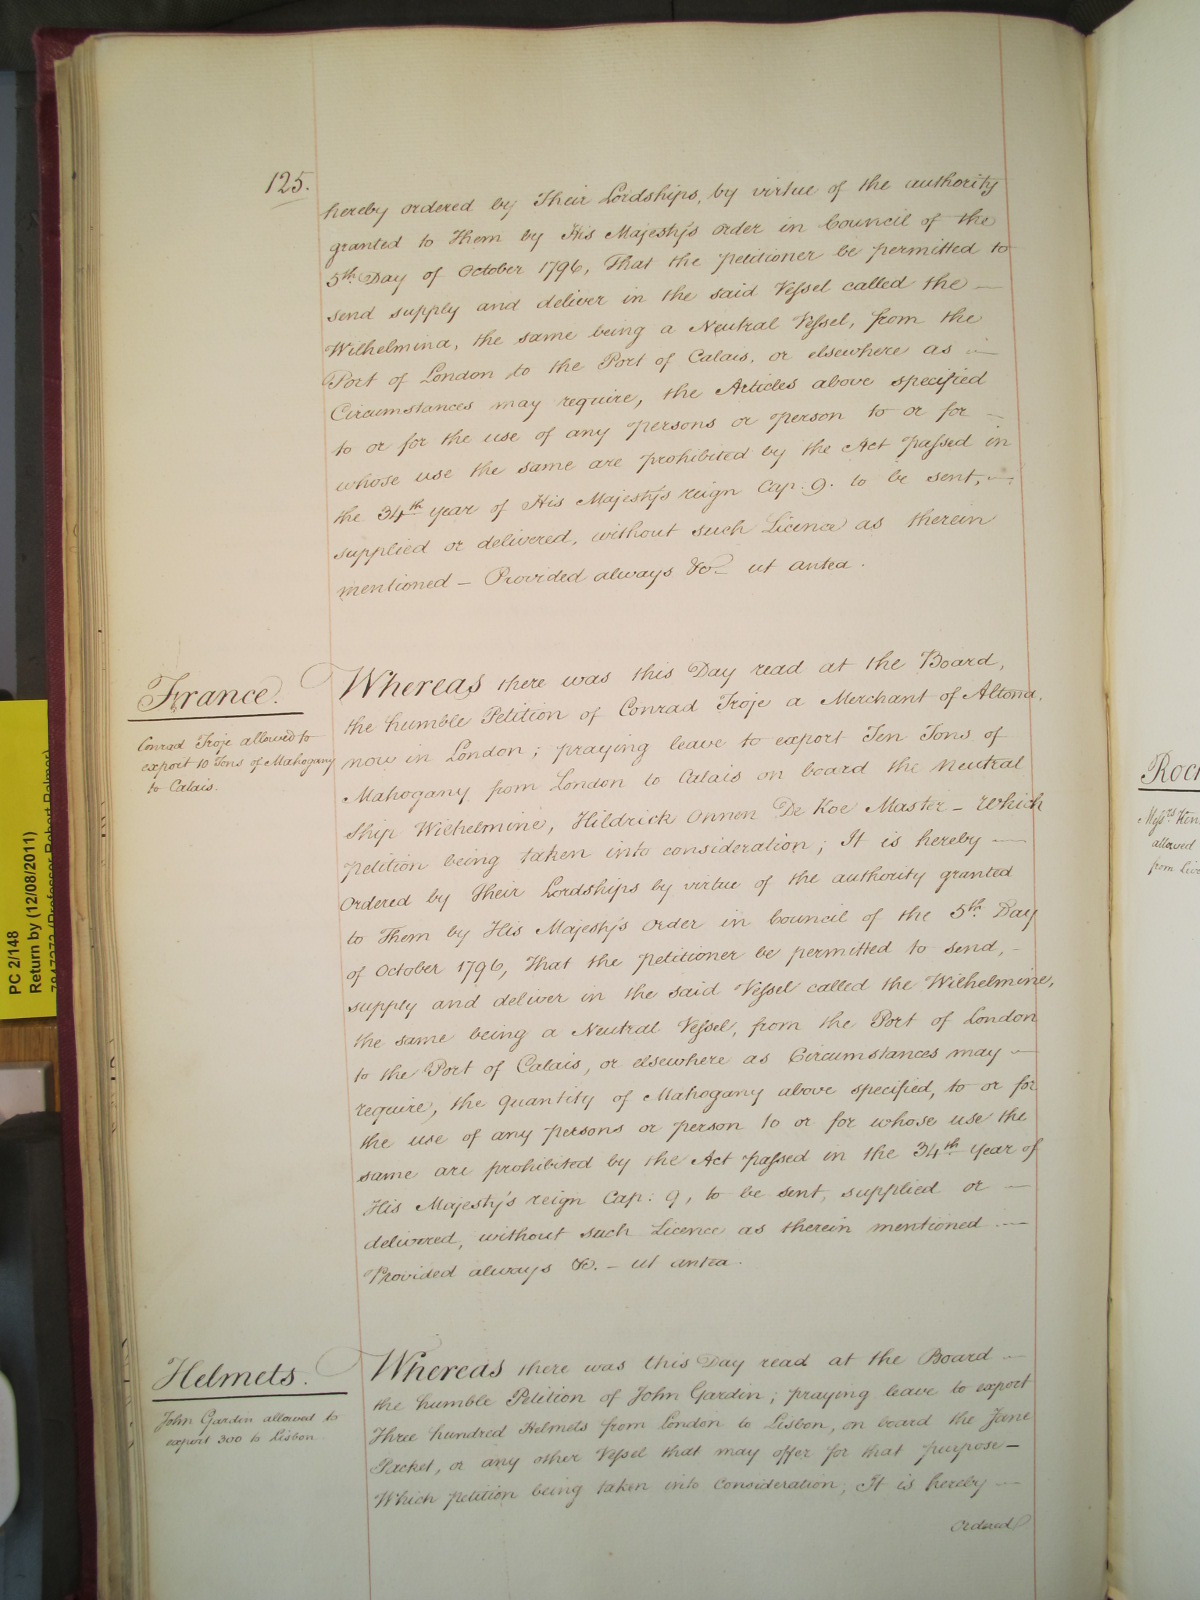 125.
hereby ordered by Their Lordships, by virtue of the authority
granted to Them by His Majesty's Order in Council of the
5th Day of October 1796, That the petitioner be permitted to
send supply and deliver in the said Vessel called the —
Wilhelmina, the same being a Neutral Vessel, from the
Port of London to the Port of Calais, or elsewhere as —
Circumstances may require, the Articles above specified
to or for the use of any persons or person to or for —
whose use the same are prohibited by the Act passed in
the 34th year of His Majesty's reign Cap: 9. to be sent, —
supplied or delivered, without such Licence as therein
mentioned — Provided always &c— ut antea.
France.
Conrad Troje allowed to
export 10 Tons of Mahogany
to Calais.
Whereas there was this Day read at the Board,
the humble Petition of Conrad Troje a Merchant of Altona,
now in London; praying leave to export Ten Tons of
Mahogany from London to Calais on board the Neutral
Ship Wilhelmine, Hildrick Onnen De Koe Master — Which
petition being taken into consideration; It is hereby —
Ordered by Their Lordships by virtue of the authority granted
to Them by His Majesty's Order in Council of the 5th Day
of October 1796, That the petitioner be permitted to send, -
supply and deliver in the said Vessel called the Wilhelmine,
the same being a Neutral Vessel, from the Port of London
to the Port of Calais, or elsewhere as Circumstances may —
require, the quantity of Mahogany above specified, to or for
the use of any persons or person to or for whose use the
same are prohibited by the Act passed in the 34th Year of
His Majesty's reign Cap: 9, to be sent, supplied or —
delivered, without such Licence as therein mentioned —
Provided always &c. — ut antea.
Helmets.
John Gardin allowed to
export 300 to Lisbon
Whereas there was this Day read at the Board —
the humble Petition of John Gardin; praying leave to export
Three hundred Helmets from London to Lisbon, on board the Jane
Packet, or any other Vessel that may offer for that purpose —
Which petition being taken into Consideration; It is hereby —
Ordered
PC 2/148
Return by (12/08/2011)
(Professor Robert Palmer)
allowed